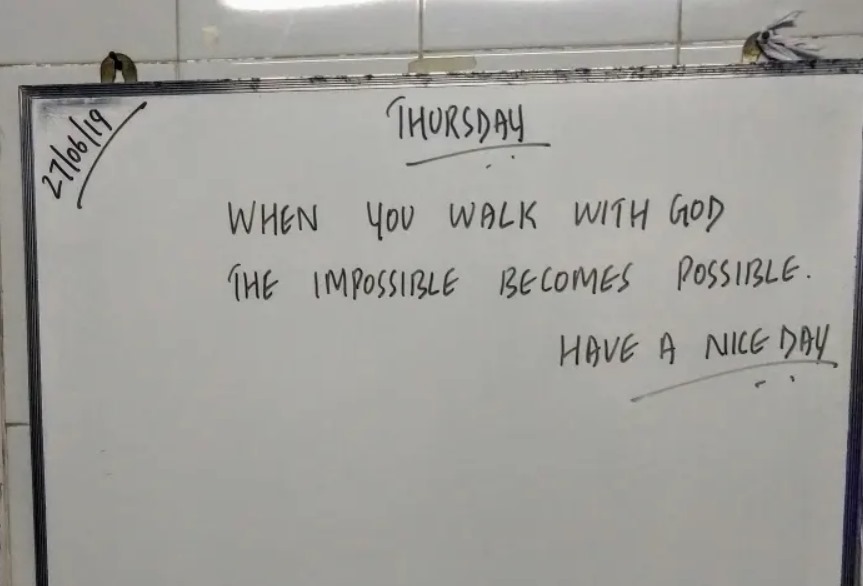 27/06/19
THURSDAY
WHEN YOU WALK WITH GOD
THE IMPOSSIBLE BECOMES POSSIBLE.
HAVE A NICE DAY